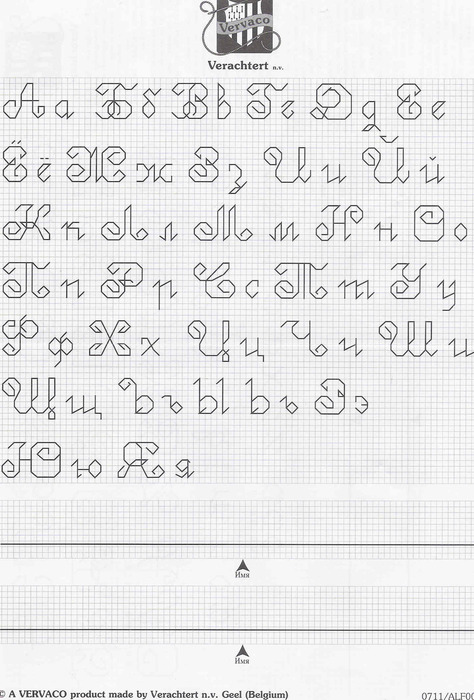 Vervaco
Verachtert n.v.
А а Б б В в Г г Д д Е е
Ё ё Ж ж З з И и Й й
К к Л л М м Н н О о
П п Р р С с Т т У у
Ф ф Х х Ц ц Ч ч Ш ш
Щ щ Ъ ъ Ы Ь ь Э э
Ю ю Я я
Имя
Имя
© A VERVACO product made by Verachtert n.v. Geel (Belgium) 0711/ALF00